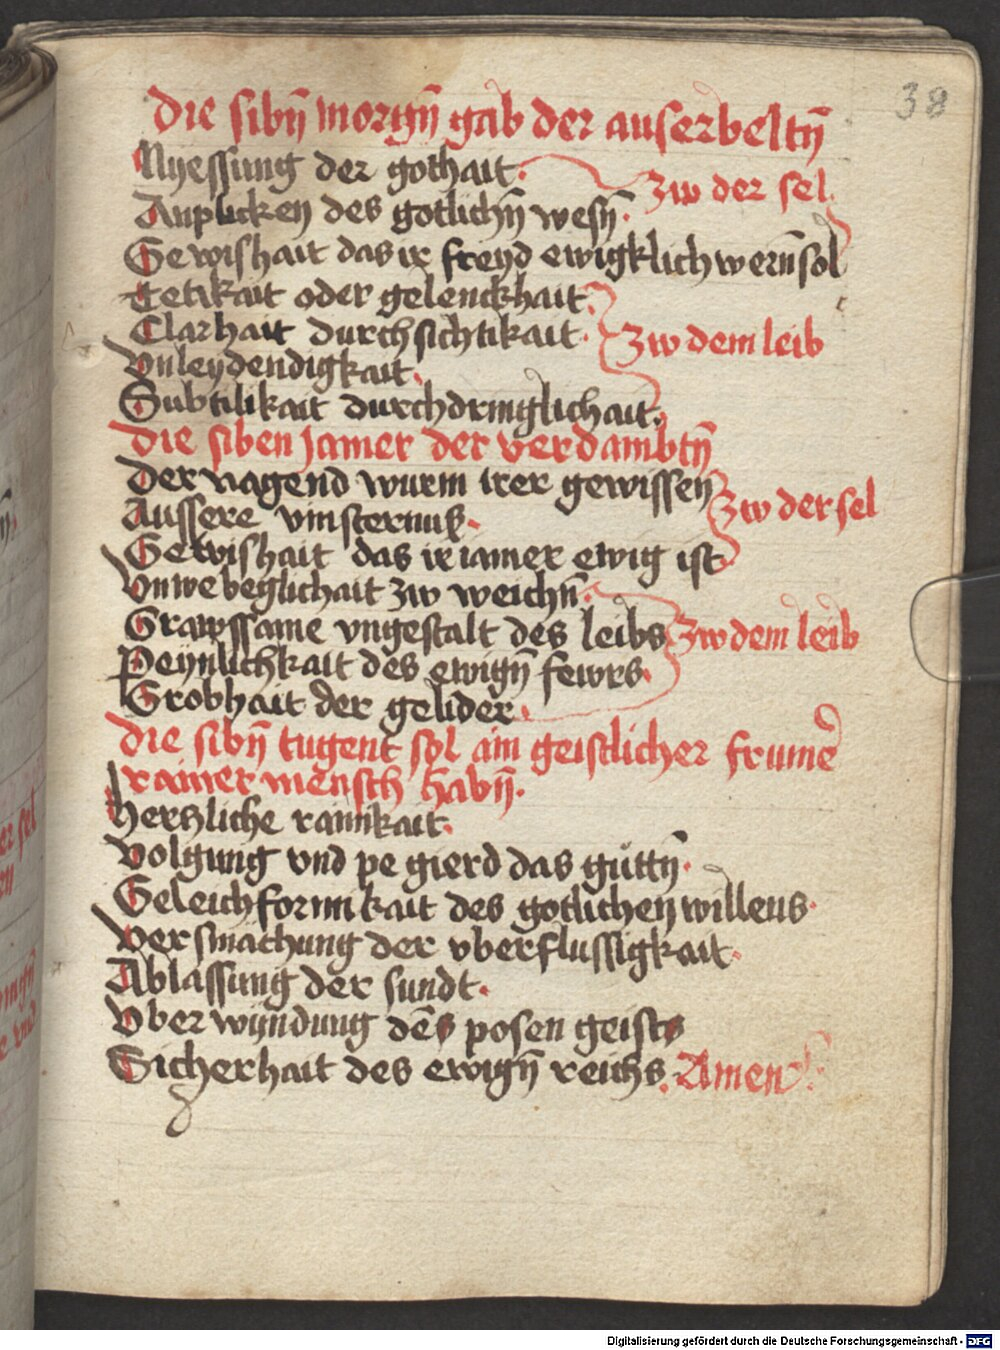 38
Die sibn̄ morgn̄ gab der auserbeltn̄
Nyessung der gothait. zw der sel
Anplicken des gotlichn̄ wesn̄.
Gewishait das ir freyd ewigklich wern̄ sol
Getikait oder gelenckhait.
Clarhait durchsichtikait. zw dem leib
Vnleydendigkait.
Subtilikait durchdringlichait.
Die siben Jamer der verdambtn̄
Der nagend wurm irer gewissen
Aussere vinsternus. zw der sel
Gewishait das ir iamer ewig ist
Vnwebeglichait zw weichn̄.
Grawssame vngestalt des leibs zw dem leib
Peynlichkait des ewign̄ fewrs.
Grobhait der gelider.
Die sibn̄ tugent sol ain geistlicher frumē
rainer mensch habn̄.
Hertzliche rainikait.
Volgung vnd pegierd das guttn̄.
Geleichformikait des gotlichen willens.
Versmachung der vberflussigkait.
Ablassung der sundt.
Vberwyndung des posen geists
Sicherhait des ewign̄ reichs. Amen
Digitalisierung gefördert durch die Deutsche Forschungsgemeinschaft - DFG